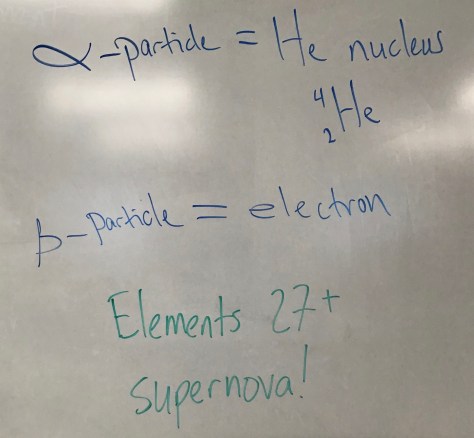 α-particle = He nucleus
⁴₂He
β-particle = electron
Elements 27+
supernova!